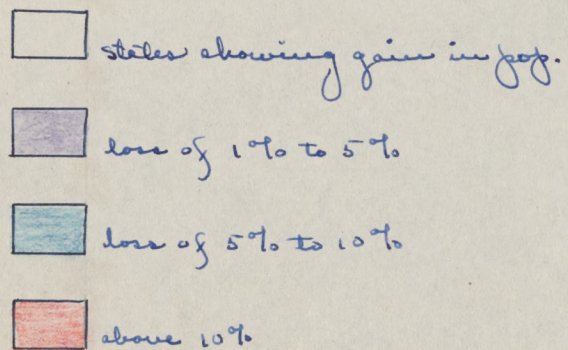 states showing gain in pop.
loss of 1% to 5%
loss of 5% to 10%
above 10%